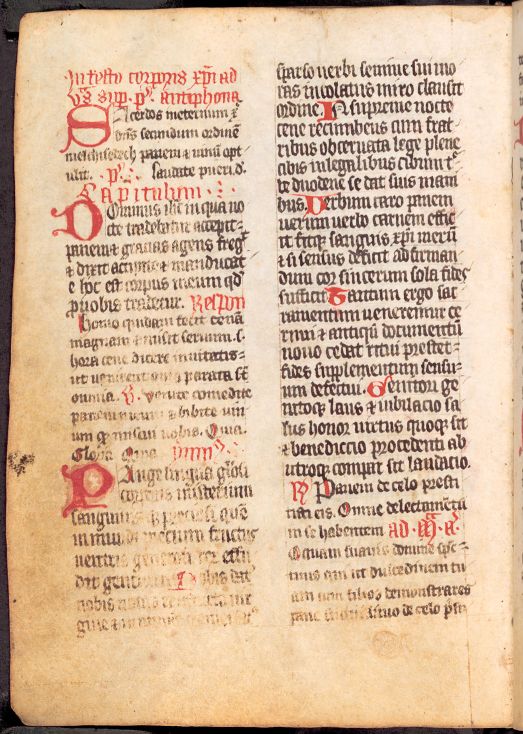 In festo corporis xpi ad
vs sup. ps. antiphona
Sacerdos meternum x
dns secundum ordinē
melchisedech panem & uinū opt
ulit. ps. laudate pueri. d.
Capitulum
Dominus ihc in qua no
cte tradebatur accepit
panem & gracias agens freg
& dixit accipite & manducat
e hoc est corpus meum qd
pro uobis tradetur. Respon
homo quidam fecit cenā
magnam & misit seruum s.
hora cene dicere inuitatis
ut uenirent quia parata st
omnia. V. Venite comedite
panem meum & bibite uin
um qd miscui uobis. Quia.
Gloria Quia ymnꝰ
Pange lingua gloci
corporis misterium
sanguinisqꝫ preciosi quē
in mundi precium fructus
uentris generosi rex effu
dit gentium. Nobis dat
nobis natus
spar so uerbi semine sui mo
ras incolatus miro clausit
ordine. In supreme nocte
cene recumbens cum frat
ribus obseruata lege plene
cibis in legalibus cibum t
be duodene se dat suis man
bus. Verbum caro panem
uerum uerbo carnem effic
it fitqꝫ sanguis xpi merū
& si sensus deficit ad firman
dum cor sincerum sola fides
sufficit. Tantum ergo sac
ramentum ueneremur ce
rnui & antiqū documentū
nouo cedat ritui prestet
fides supplementum sensu
um defectui. Genitori ge
nitoqꝫ laus & iubilacio sa
lus honor uirtus quoqꝫ sit
& benediccio procedenti ab
utroqꝫ compar sit laudacio.
R Panem de celo presti
tisti eis. Omne delectamētū
in se habentem ad m a
O quam suauis domine spc
tuus qui ut dulcedinem tu
am in filios demonstrares
pane suauissimo de celo